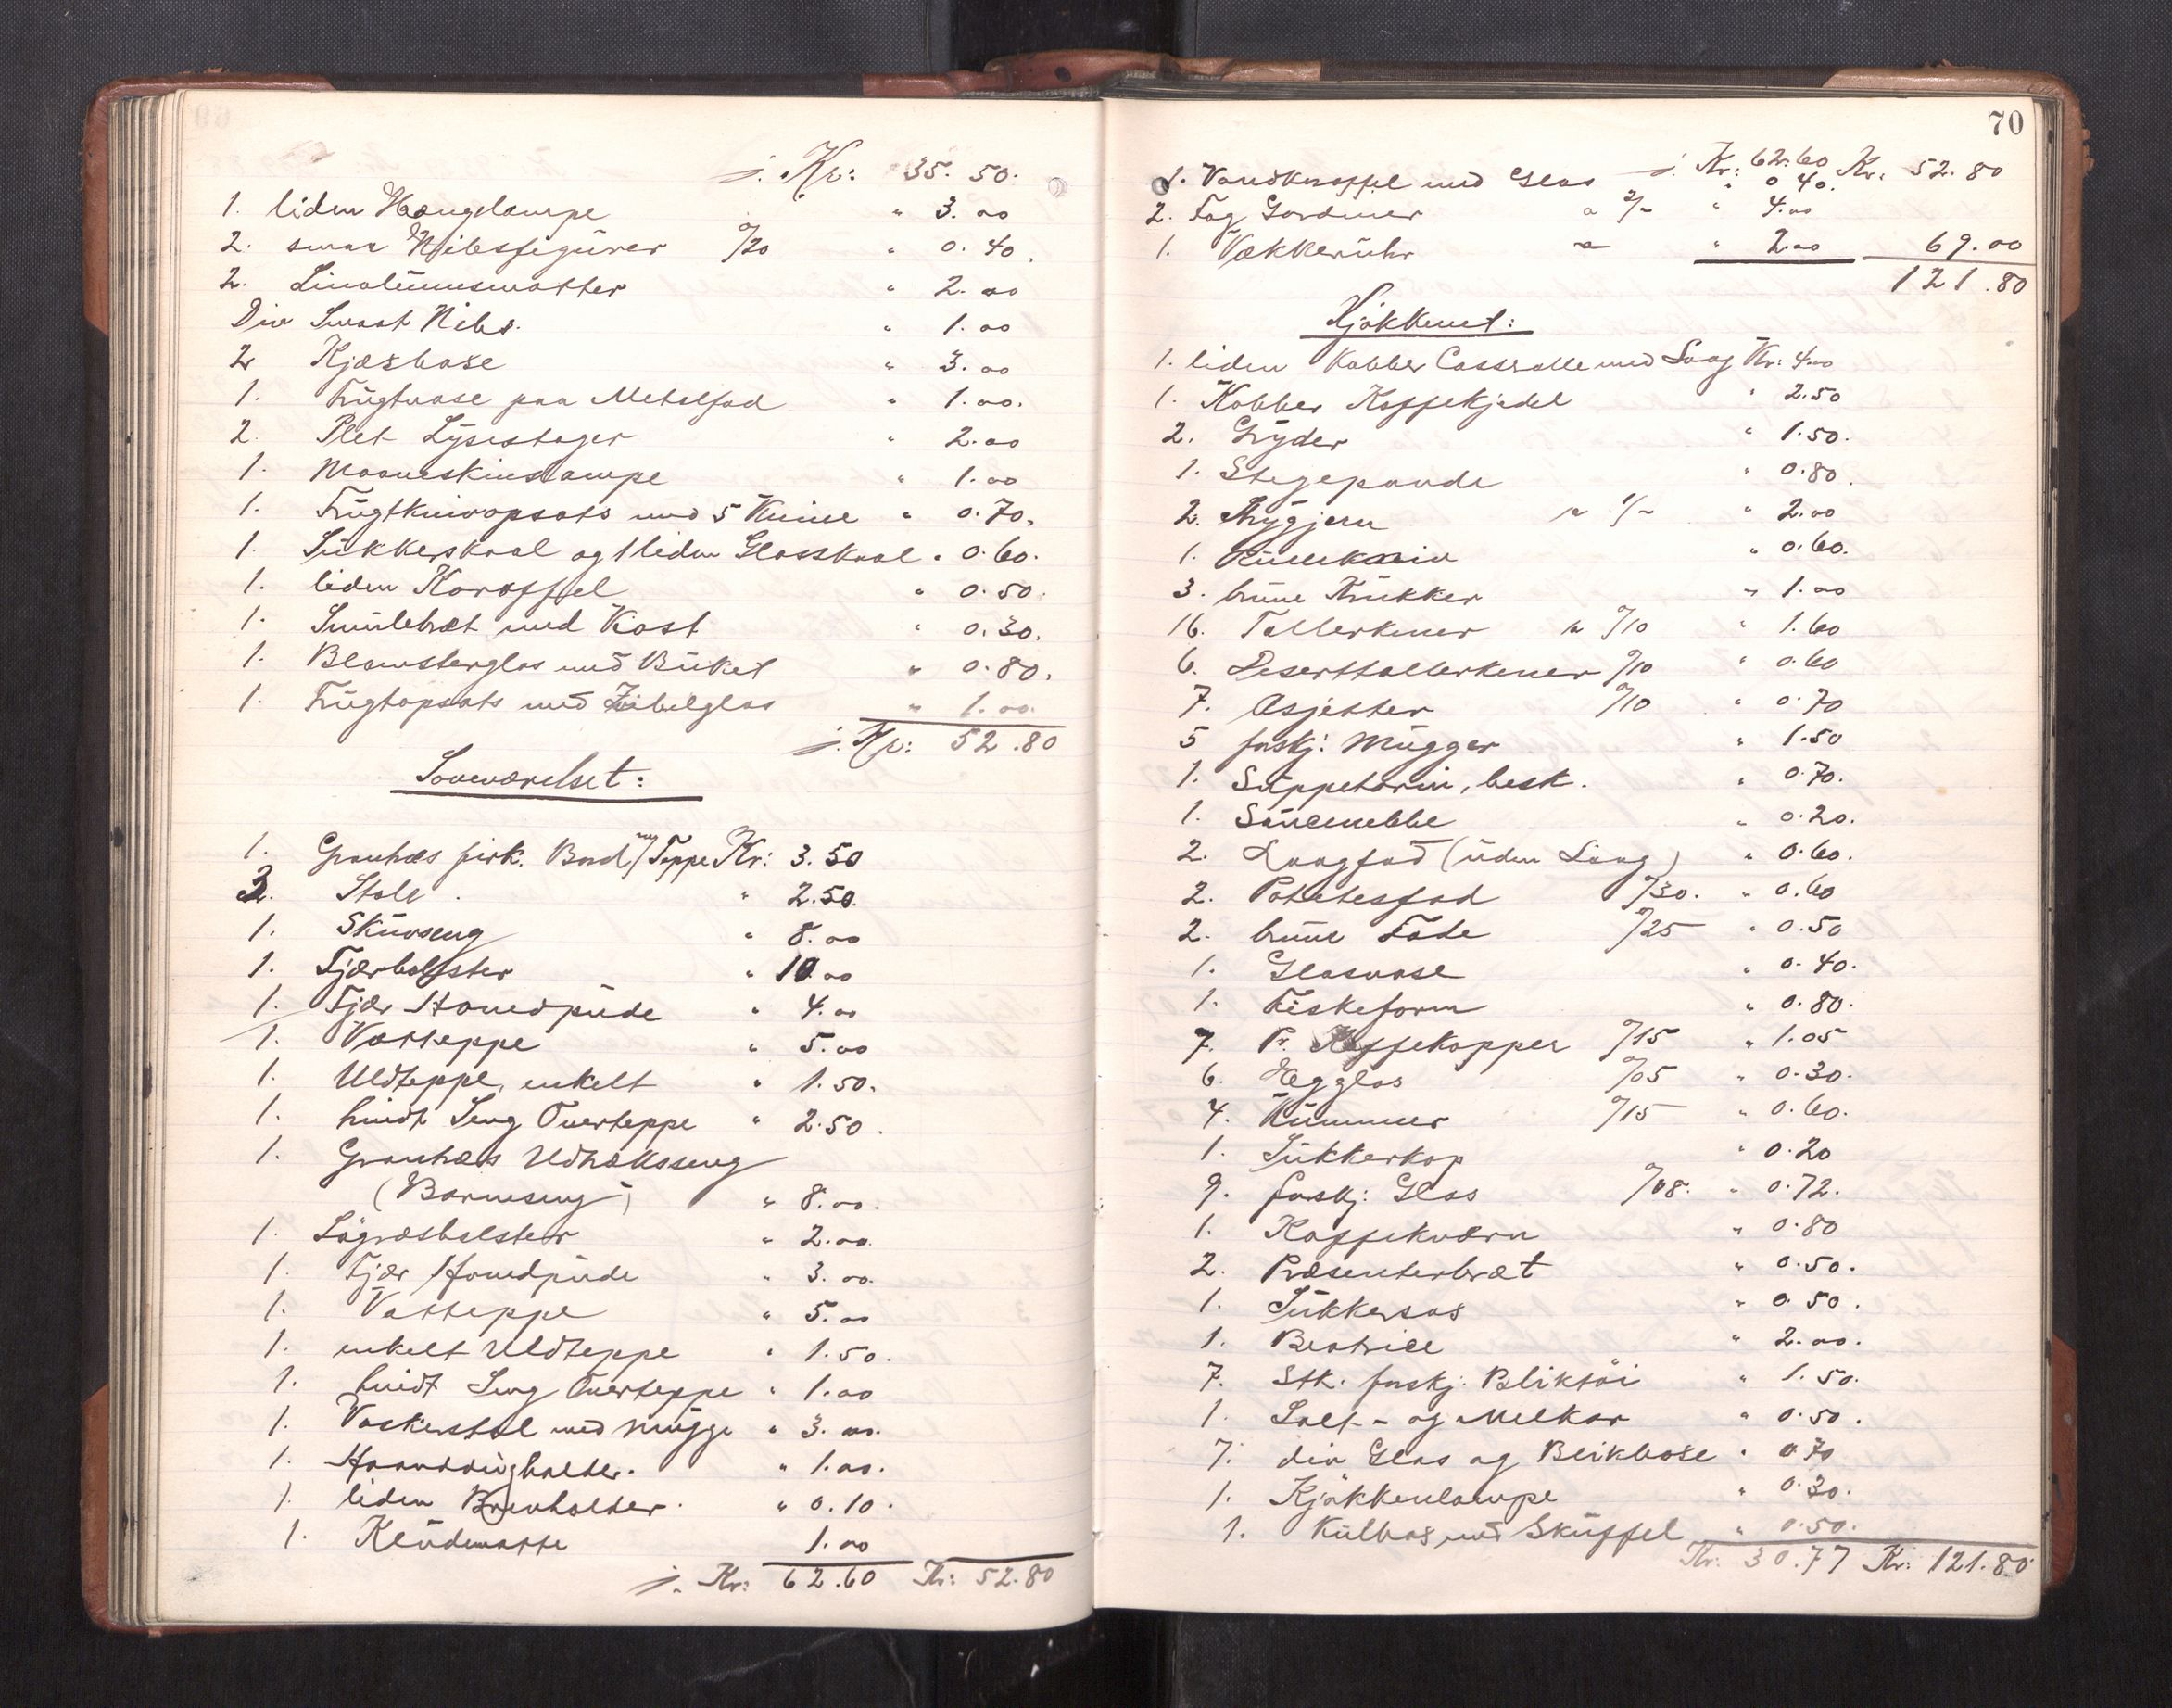 j. Kr: 35.50.
1. liden Hængelampe " 3.00
2. smaa Nibsfigürer 0/20 " 0.40.
2. Linoleumsmatter " 2.00
Div Smaat Nibs. " 1.00
2 Kjæsbase " 3.00
1. Frügtvase paa Metalfad " 1.00.
2. Plet Lysestager " 2.00
1. Maaneskinslampe " 1.00
1. Frügtknivopsats med 5 Knive " 0.70.
1. Sükkerskaal og 1 liden Glasskaal " 0.60.
1. liden Karaffel " 0.50.
1. Smülebræt med Kost " 0.30.
1. Blomsterglas med Büket " 0.80.
1. Frügtopsats med Zibelglas " 1.00.
j. Kr: 52.80
Soveværelset:
1. Granhæs firk. Bord m/ Teppe Kr: 3.50
3. Stole. " 2.50.
1. Sküvseng " 8.00
1. Fjærbolster " 10.00
1. Fjær Hovedpüde " 4.00
1. Vatteppe " 5.00
1. Uldteppe, enkelt " 1.50.
1. hvidt Seng Overteppe " 2.50.
1. Granhæs Udtræksseng
(Barneseng) " 8.00.
1. Sögræsbolster " 2.00.
1. Fjær Hovedpüde " 3.00.
1. Vatteppe " 5.00
1. enkelt Uldteppe " 1.50.
1. hvidt Seng Overteppe " 1.00
1. Vaskerstel med Mügge " 3.00.
1. Haanddugholder. " 1.00.
1. liden Brevholder. " 0.10.
1. Klüdematte 1.00
j. Kr: 62.60 Kr: 52.80
70
j. Kr: 62.60 Kr: 52.80
1. Vandkaraffel med Glas " 0.40.
2. Fag Gardiner a 2/- " 4.00
1. Vækkerühr a " 2.00 69.00
121.80
Kjøkkenet:
1. liden Kobber Casserolle med Laag Kr: 4.00
1. Kobber Kaffekjedel " 2.50
2. Gryder " 1.50.
1. Stegepande " 0.80.
2. Strygjern a 1/- " 2.00
1. " 0.60.
3. brüne Krükker " 1.00
16. Tallerkener a 0/10 " 1.60
6. Deserttallerkener 0/10 " 0.60
7. Asjetter 0/10 " 0.70
5 forskj: Mügger " 1.50
1. Süppeterin, besk. " 0.70.
1. Saücenebbe " 0.20.
2. Laagfad (üden Laag) " 0.60.
2. Potetesfad 0/30. " 0.60
2. brüne Fade 0/25 " 0.50
1. Glasvase " 0.40.
1. Fiskeform " 0.80.
7. Pr. Kaffekopper 0/15 " 1.05
6. Hegglas 0/05 " 0.30.
4. Kümmer 0/15 " 0.60.
1. Sükkerkop " 0.20
9. forskj: Glas 0/08. " 0.72.
1. Kaffekværn " 0.80
2. Præsenterbræt " 0.50.
1. Sükkersas " 0.50.
1. Beatrice " 2.00.
7. Stk. forskj. Bliktöi " 1.50.
1. Salt- og Melkar " 0.50.
7. div Glas og Blikbokse " 0.70
1. Kjøkkenlampe " 0.30.
1. Külbas med Sküffel " 0.50.
Kr: 30.77 Kr: 121.80